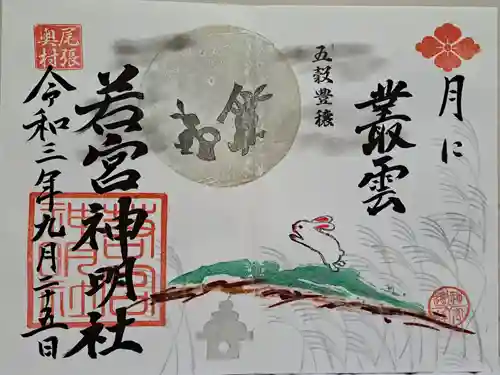 月に
叢雲
五穀豊穣
尾張
奥村
若宮神明社
令和三年九月二十五日